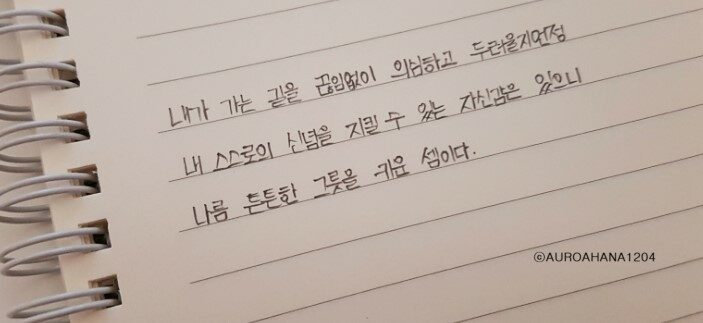 내가 가는 길을 끊임없이 의심하고 두려울지언정
내 스스로의 신념을 지킬 수 있는 자신감은 있으니
나름 튼튼한 그릇을 키운 셈이다.
©AUROAHANA1204